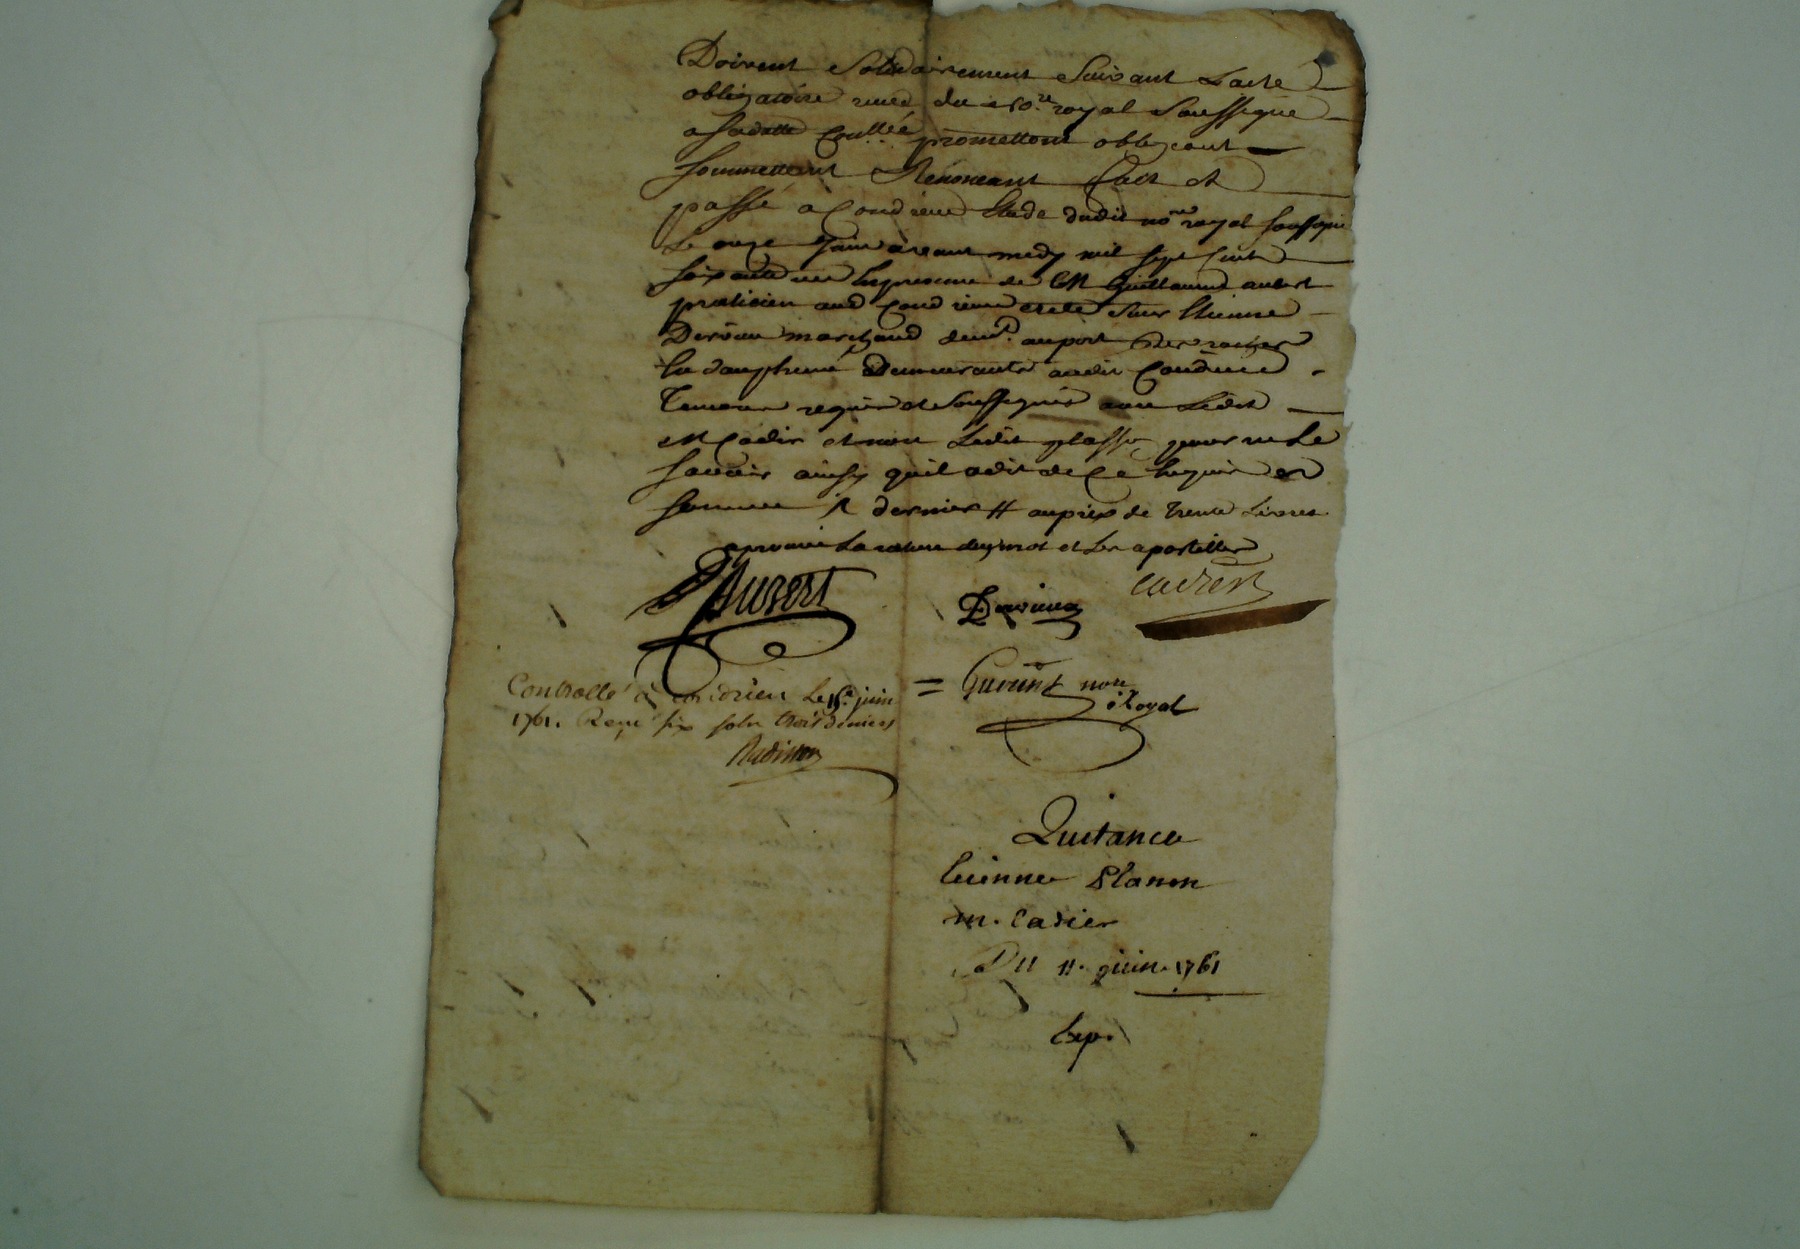 Doivent Solidairement Suivant Lacte
obligatoire receu du no.re royal Soussigne
a sadatte Controllé promettent obligeant
soumettant Renonceant fait et
passé a Condrieu Etude dudit no.re royal soussigné
Le onze Juin avant midy mil sept Cent
soixante un En presence de M Guillaume aubert
praticien aud Condrieu et de Sieur Etienne
Dervieu marchand demt. au port des roches
En dauphiné Demeurants audit Condrieu
Temoins requis et Soussignés avec Ledit
M Cadier et non Ledit plasson pour ne Le
scavoir ainsy quil a dit de Ce Enquis et
sommé R dernier tt au prix de trente Livres
aprouvé La rature du mot et Les apostilles
Aubert
Dervieu
Cadier
Controllé à Condrieu Le 15e juin
1761. Reçu six sols trois deniers
Radisson
= Guerin nore
Royal
Quitance
Etienne Planon
m. Cadier
DU 11. juin 1761
Exp.